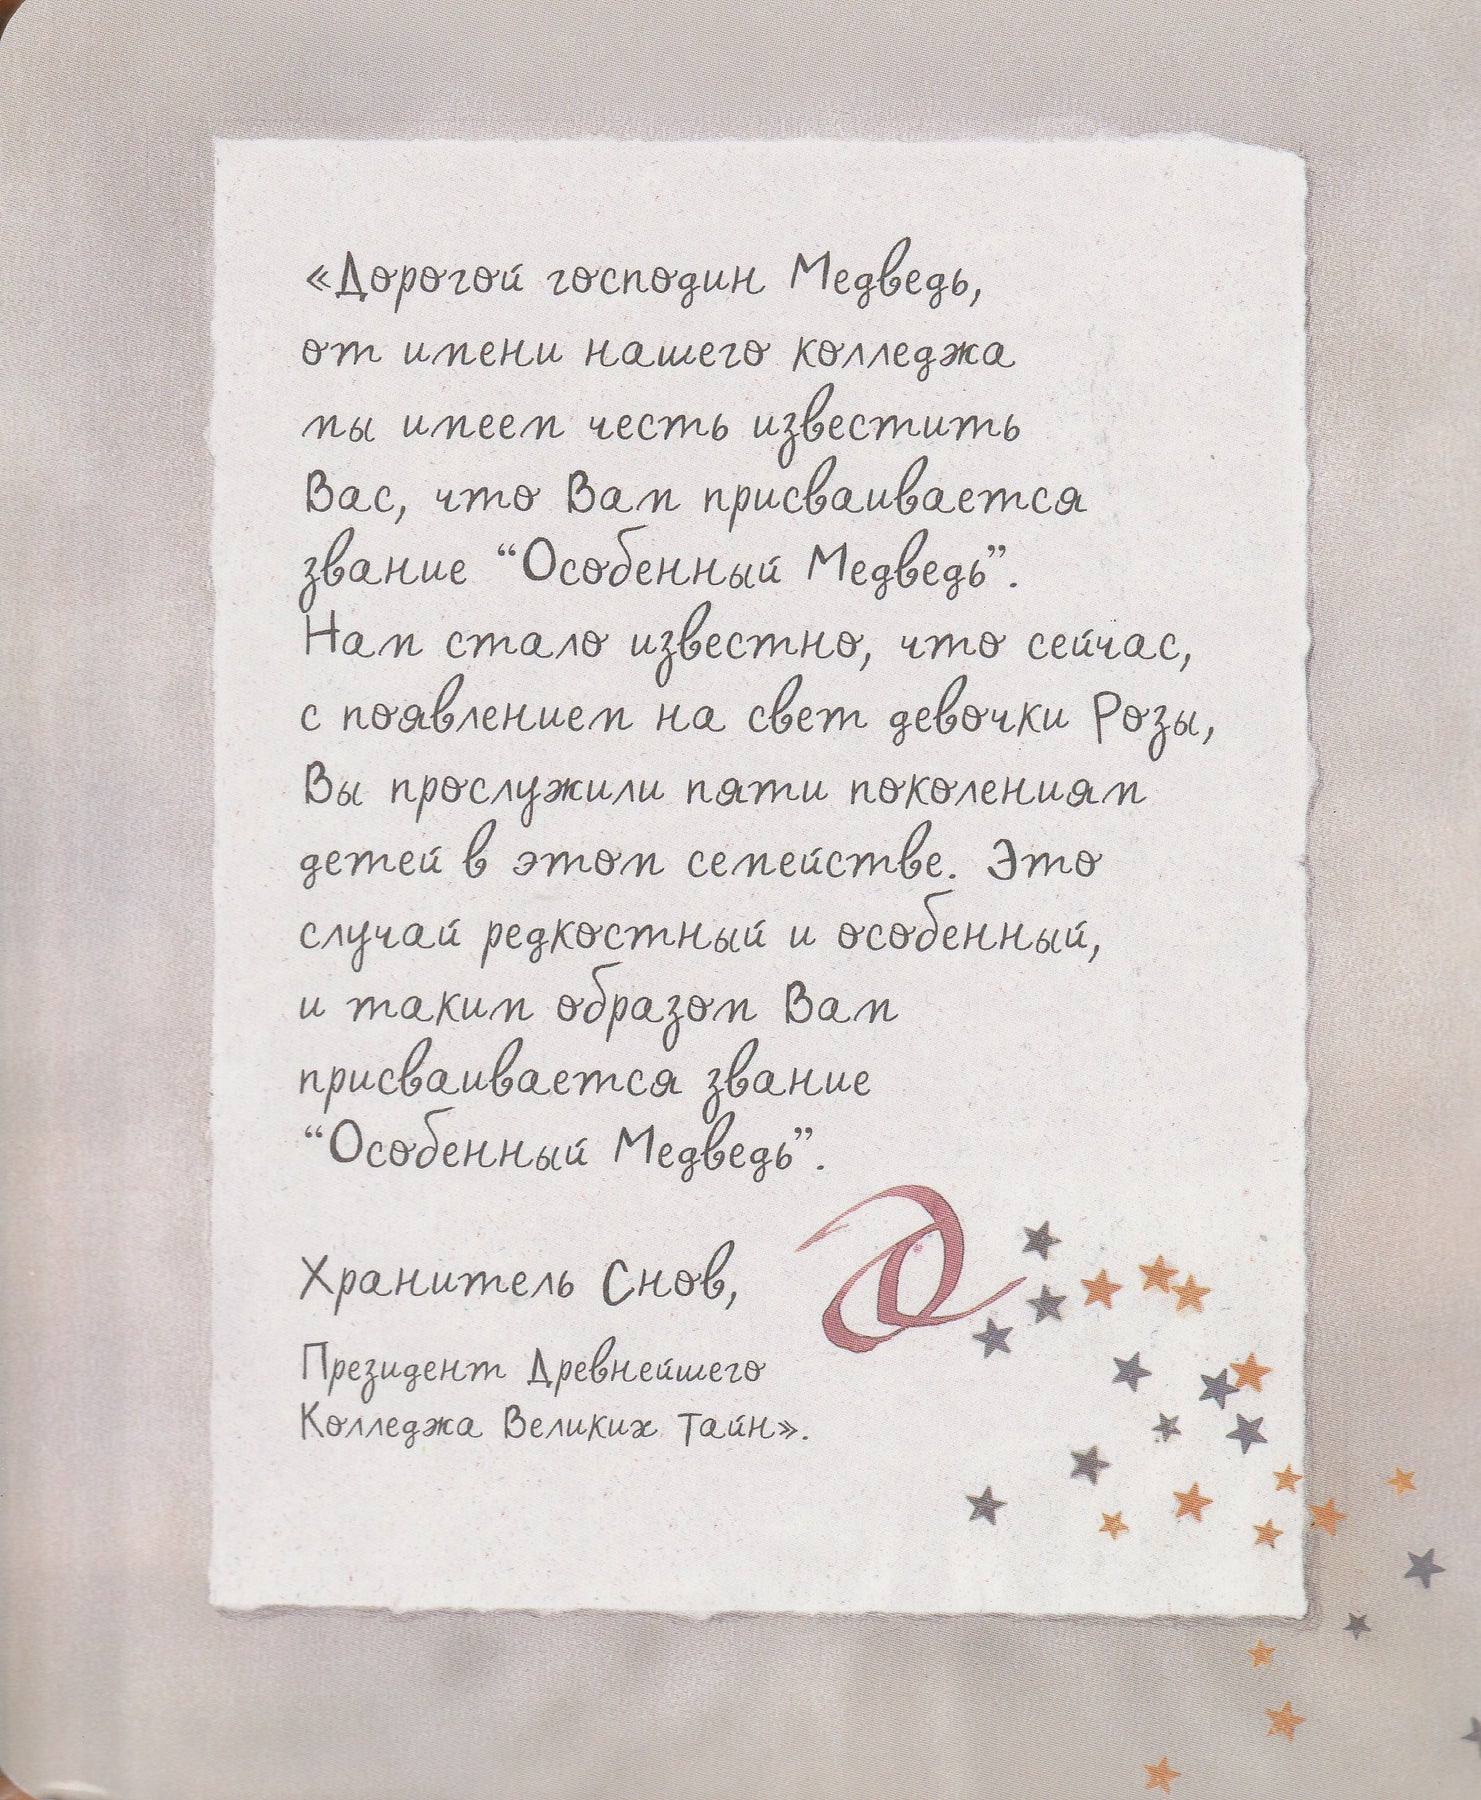 «Дорогой господин Медведь,
от имени нашего колледжа
мы имеем честь известить
Вас, что Вам присваивается
звание “Особенный Медведь”.
Нам стало известно, что сейчас,
с появлением на свет девочки Розы,
Вы прослужили пяти поколениям
детей в этом семействе. Это
случай редкостный и особенный,
и таким образом Вам
присваивается звание
“Особенный Медведь”.
Хранитель Снов,
Президент Древнейшего
Колледжа Великих Тайн».